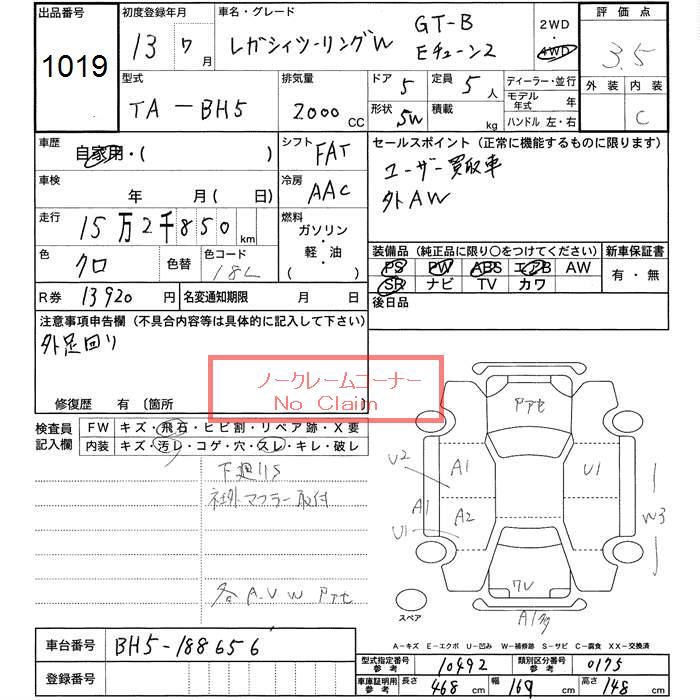 出品番号 初度登録年月 車名・グレード 評価点
1019 13 7月 レガシィツーリングW GT-B Eチューン2 2WD・4WD 3.5
外装 内装
C
型式 排気量 ドア 定員 ディーラー・並行
TA-BH5 2000 CC 5 5人 モデル年式 年
形状 5W 積載 kg ハンドル 左・右
車歴 自家用・( ) シフト FAT
セールスポイント (正常に機能するものに限ります)
ユーザー買取車
外AW
車検 年 月( 日) 冷房 AAC
走行 15万2千850km 燃料 ガソリン・軽・油( )
色 クロ 色替 色コード 18L
装備品 (純正品に限り〇をつけてください) 新車保証書
PS PW ABS エアB AW 有・無
SR ナビ TV カワ
R券 13920円 名変通知期限 月 日
後日品
注意事項申告欄 (不具合内容等は具体的に記入して下さい)
外足回り
ノークレームコーナー
No Claim
修復歴 有 〔箇所
検査員記入欄 FW キズ・飛石・ヒビ割・リペア跡・X要
内装 キズ・汚レ・コゲ・穴・スレ・キレ・破レ
下廻りS
社外マフラー取付
各A.U W アセ
アセ
U2 A1 U1
A1 A2 W3
U1
クレ
スペア
A1多
A-キズ E-エクボ U-凹み W-補修跡 S-サビ C-腐食 XX-交換済
車台番号 BH5-188656
登録番号
型式指定番号参考 10492 類別区分番号参考 0175
車庫証明用参考 長さ 468cm 幅 169cm 高さ 148cm